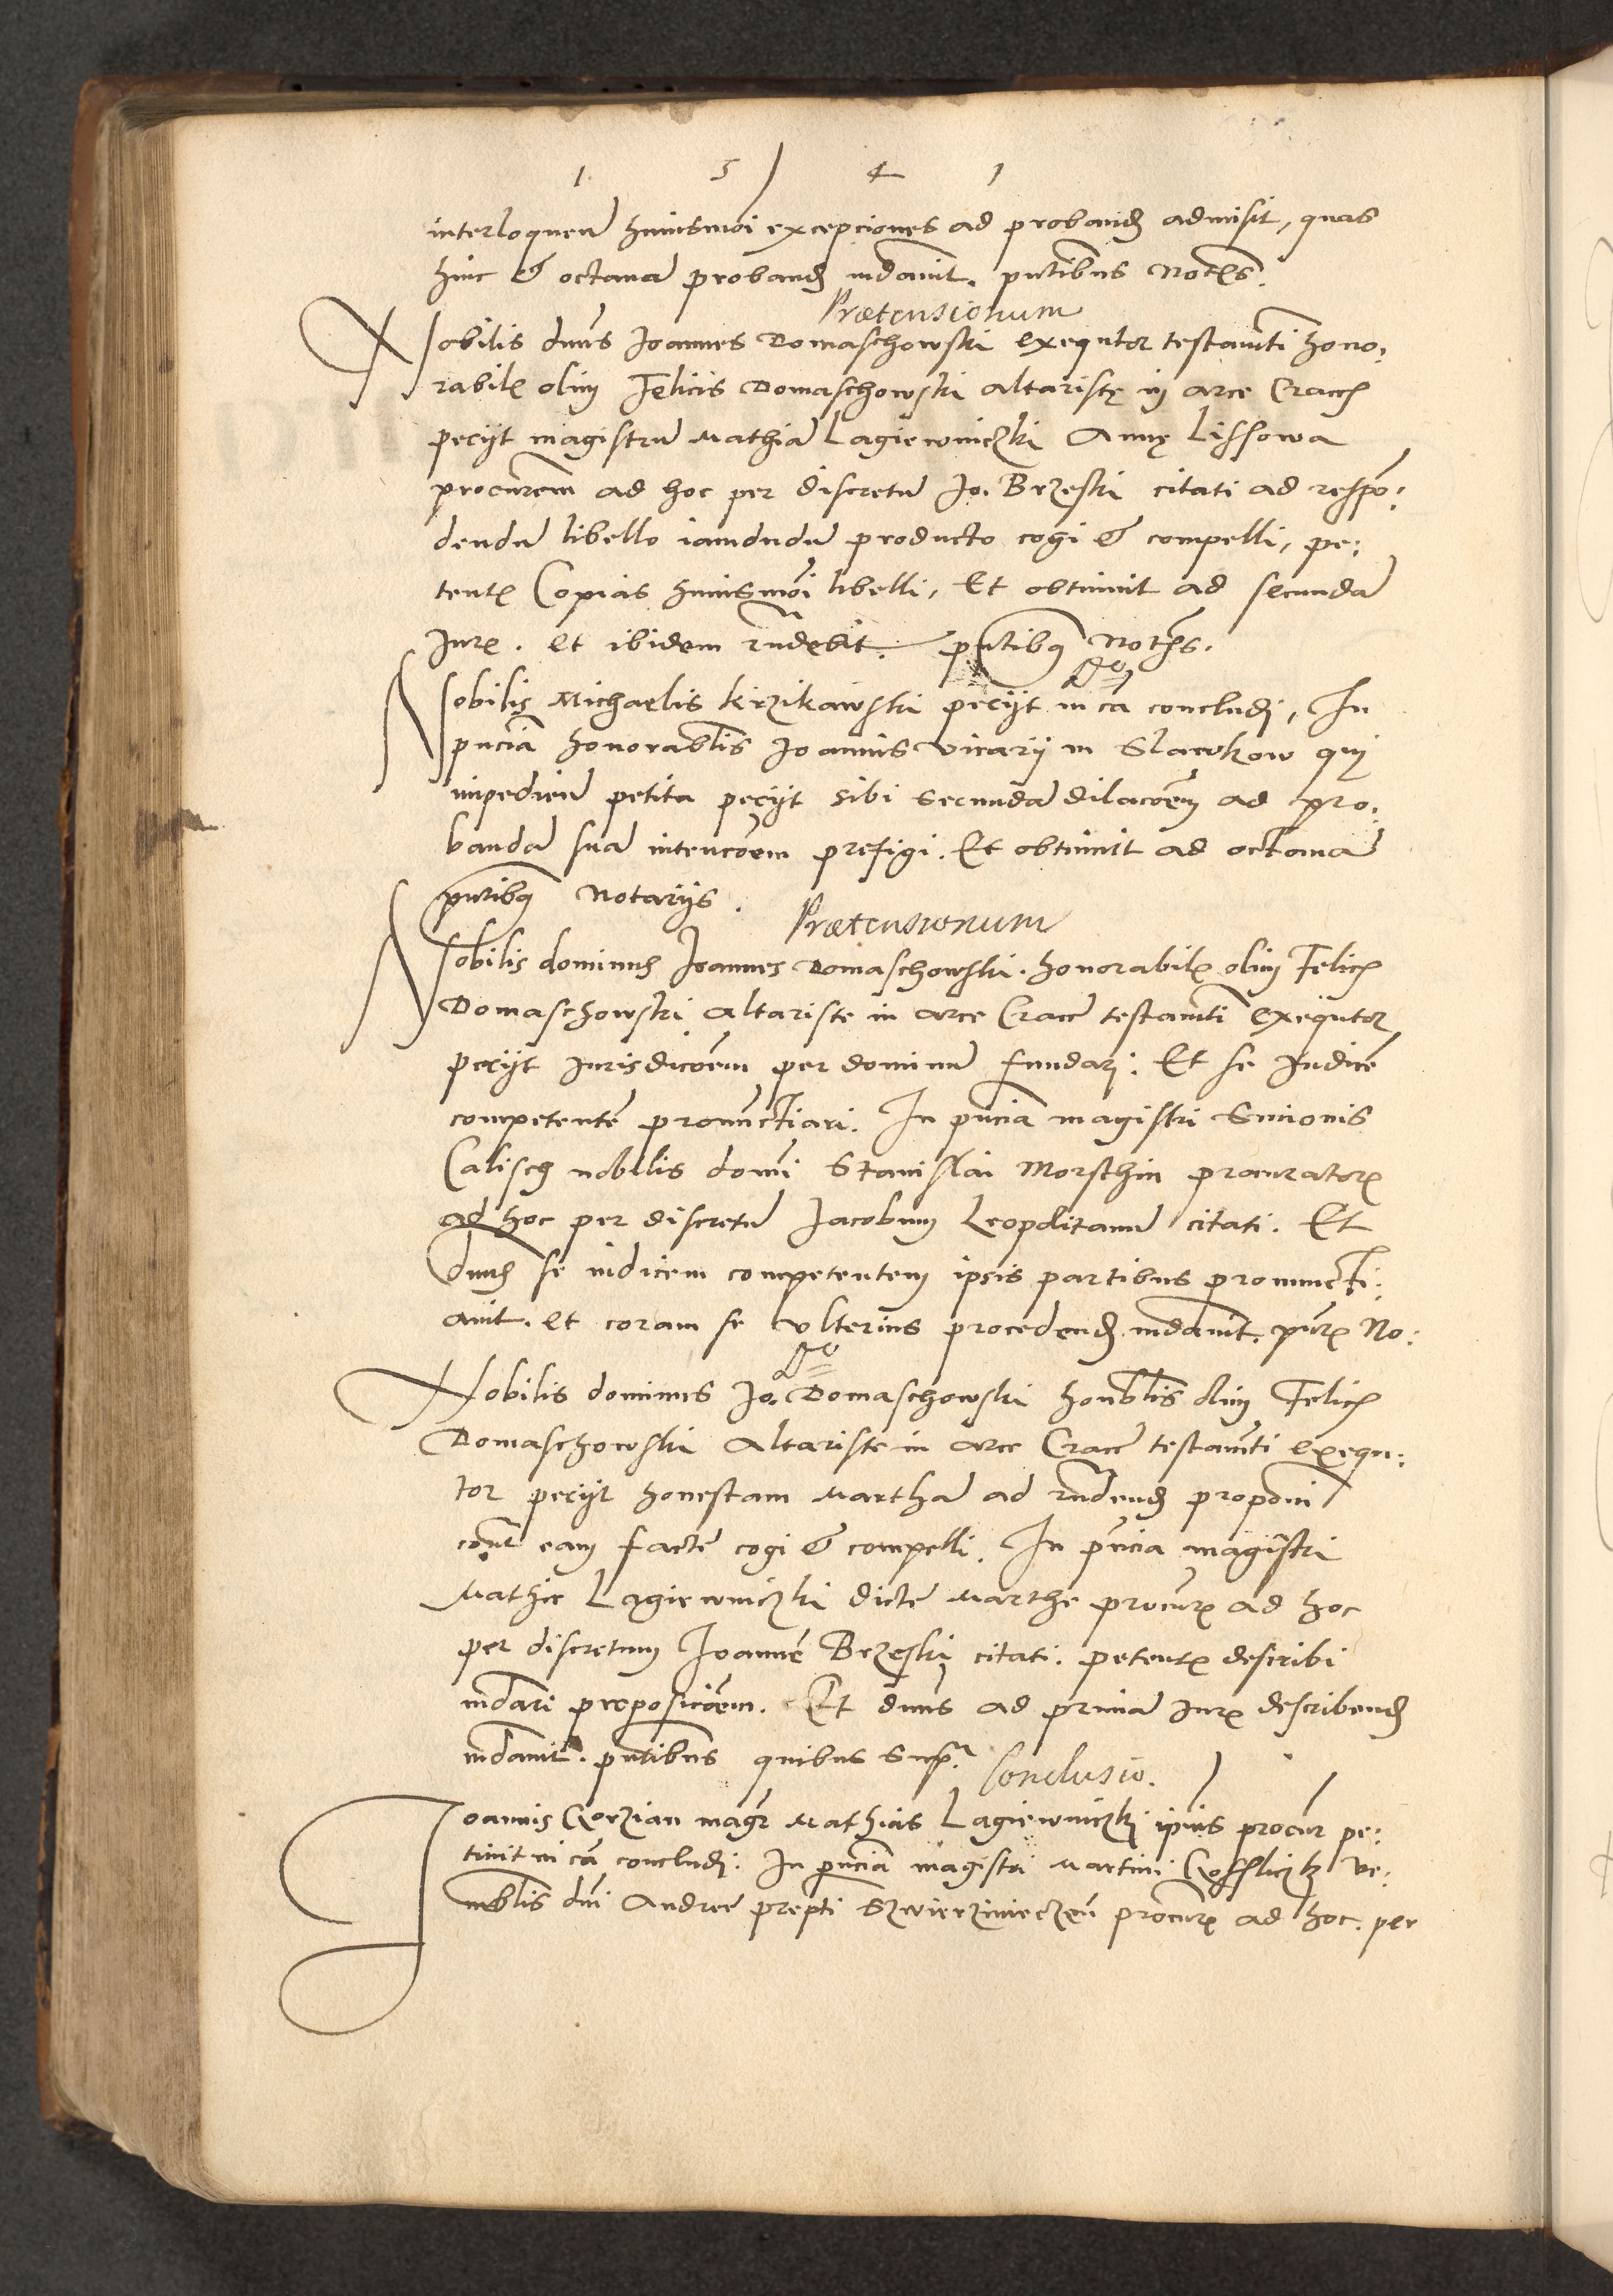 1 5 4 1
interloquen huiusmoi excepciones ad proband admisit, quas
hinc & octaua proband mdauit. pntibus Notrs.
Prætensionum
Nobilis dnus Ioannes Domaschowski exequtor testamti hono:
rabil olim Felicis Domaschowski altaristę in arce Cracc
peciit magistru Mathia Lagiewniczki Annę Lissowa
procurem ad hoc per discretu Io. Brzeski citati ad respo:
dendu libello iamdudu producto cogi & compelli, pe:
tent Copias huiusmoi libelli, Et obtinuit ad secunda
Iur. et ibidem rndebit. pntibus Notrs.
Nobilis Michaelis Krzikawski peciit in ca concludi, In
pncia honorablis Ioannis vicarij in Slawkow qui
impedien petita peciit sibi secunda dilacoem ad pro:
banda sua intencoem prefigi. Et obtinuit ad octaua
pntibus Notarijs.
Prætensionum
Nobilis dominus Ioannes Domaschowski. honorabil olim Felic
Domaschowski altariste in arce Cracc testamti exequtor
peciit Iurisdicoem per dominu fundari: Et se Iudice
competente pronunctiari. In pncia magistri Simonis
Calisch nobilis domi Stanislai Morsthin procurator
ad hoc per discretu Iacobum Leopolitanu citati. Et
dnus se iudicem competentem ipsis partibus pronuncti:
auit. et coram se vlterius procedend mdauit. pnt No:
Nobilis dominus Io. Domaschowski honblis olim Felic
Domaschowski altariste in arce Cracc testamti exequ:
tor peciit honestam Martha ad rndend proponi
contr eam facte cogi & compelli. In pncia magistri
Mathie Lagiewniczki dicte Marthe procur ad hoc
per discretum Ioanne Brzeski citati. petent describi
mdari proposicoem. Et dnus ad prima Iur describend
mdauit. pntibus quibus supra.
Conclusio.
Ioannis Gorzian magr Mathias Lagiewniczki ipius procur pe:
tiuit in ca concludi: In pncia magistri Martini Ve:
nblis dni Andree prepti Szwierzinieczen procur ad hoc. per